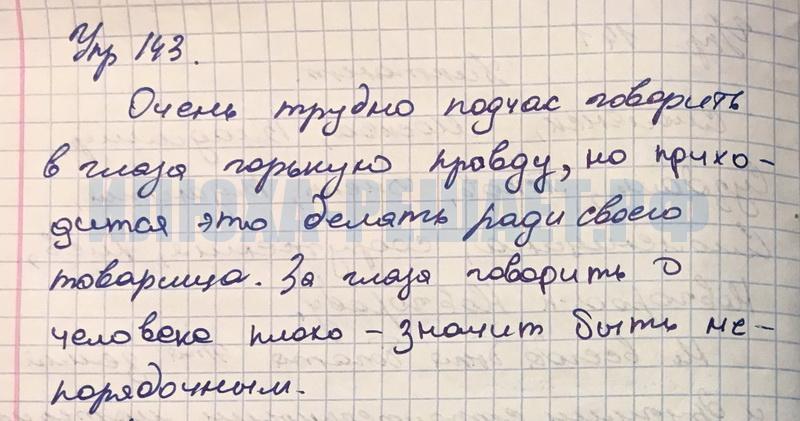 Упр 143.
Очень трудно подчас говорить
в глаза горькую правду, но прихо-
дится это делать ради своего
товарища. За глаза говорить о
человеке плохо – значит быть не-
порядочным.
ИЛЮХА-РЕШАЕТ.РФ